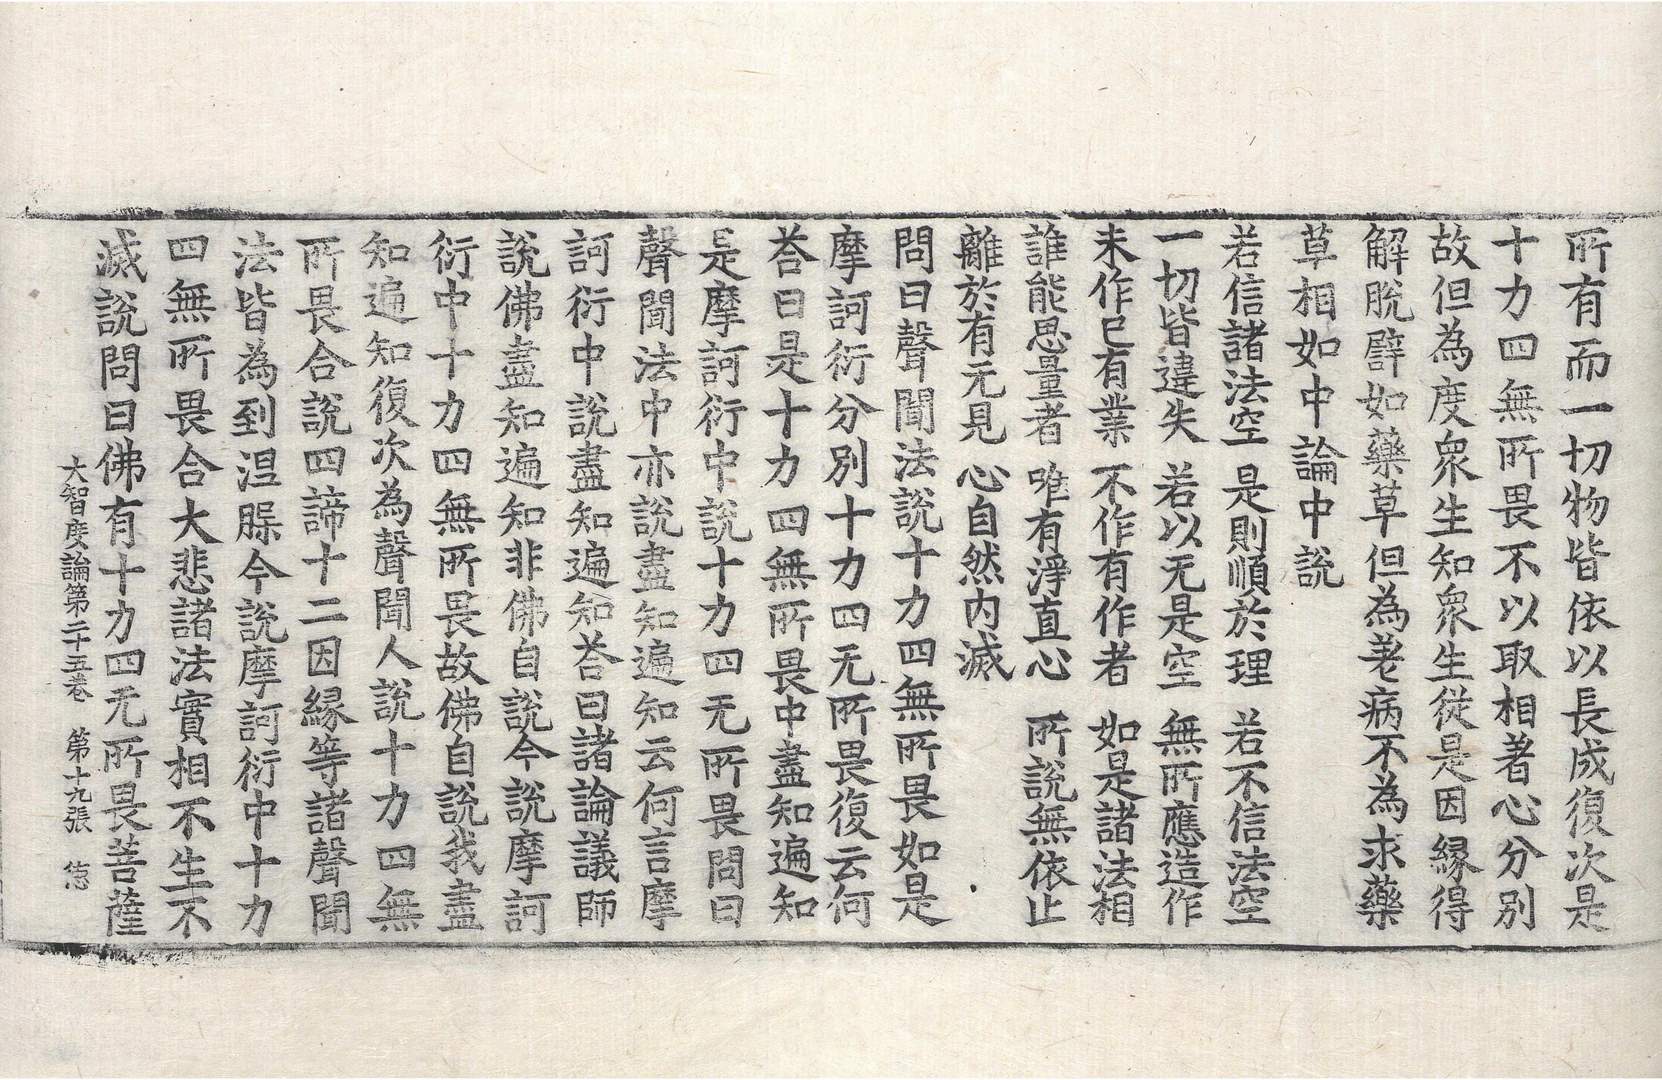 所有而一切物皆依以長成復次是
十力四無所畏不以取相著心分別
故但為度衆生知衆生從是因緣得
解脫譬如藥草但為差病不為求藥
草相如中論中說
若信諸法空　是則順於理　若不信法空
一切皆違失　若以无是空　無所應造作
未作已有業　不作有作者　如是諸法相
誰能思量者　唯有淨直心　所說無依止
離於有无見　心自然內滅
問曰聲聞法說十力四無所畏如是
摩訶衍分別十力四无所畏復云何
荅曰是十力四無所畏中盡知遍知
是摩訶衍中說十力四无所畏問曰
聲聞法中亦說盡知遍知云何言摩
訶衍中說盡知遍知荅曰諸論議師
說佛盡知遍知非佛自說今說摩訶
衍中十力四無所畏故佛自說我盡
知遍知復次為聲聞人說十力四無
所畏合說四諦十二因緣等諸聲聞
法皆為到涅槃今說摩訶衍中十力
四無所畏合大悲諸法實相不生不
滅說問曰佛有十力四无所畏菩薩
大智度論第二十五卷　第十九張